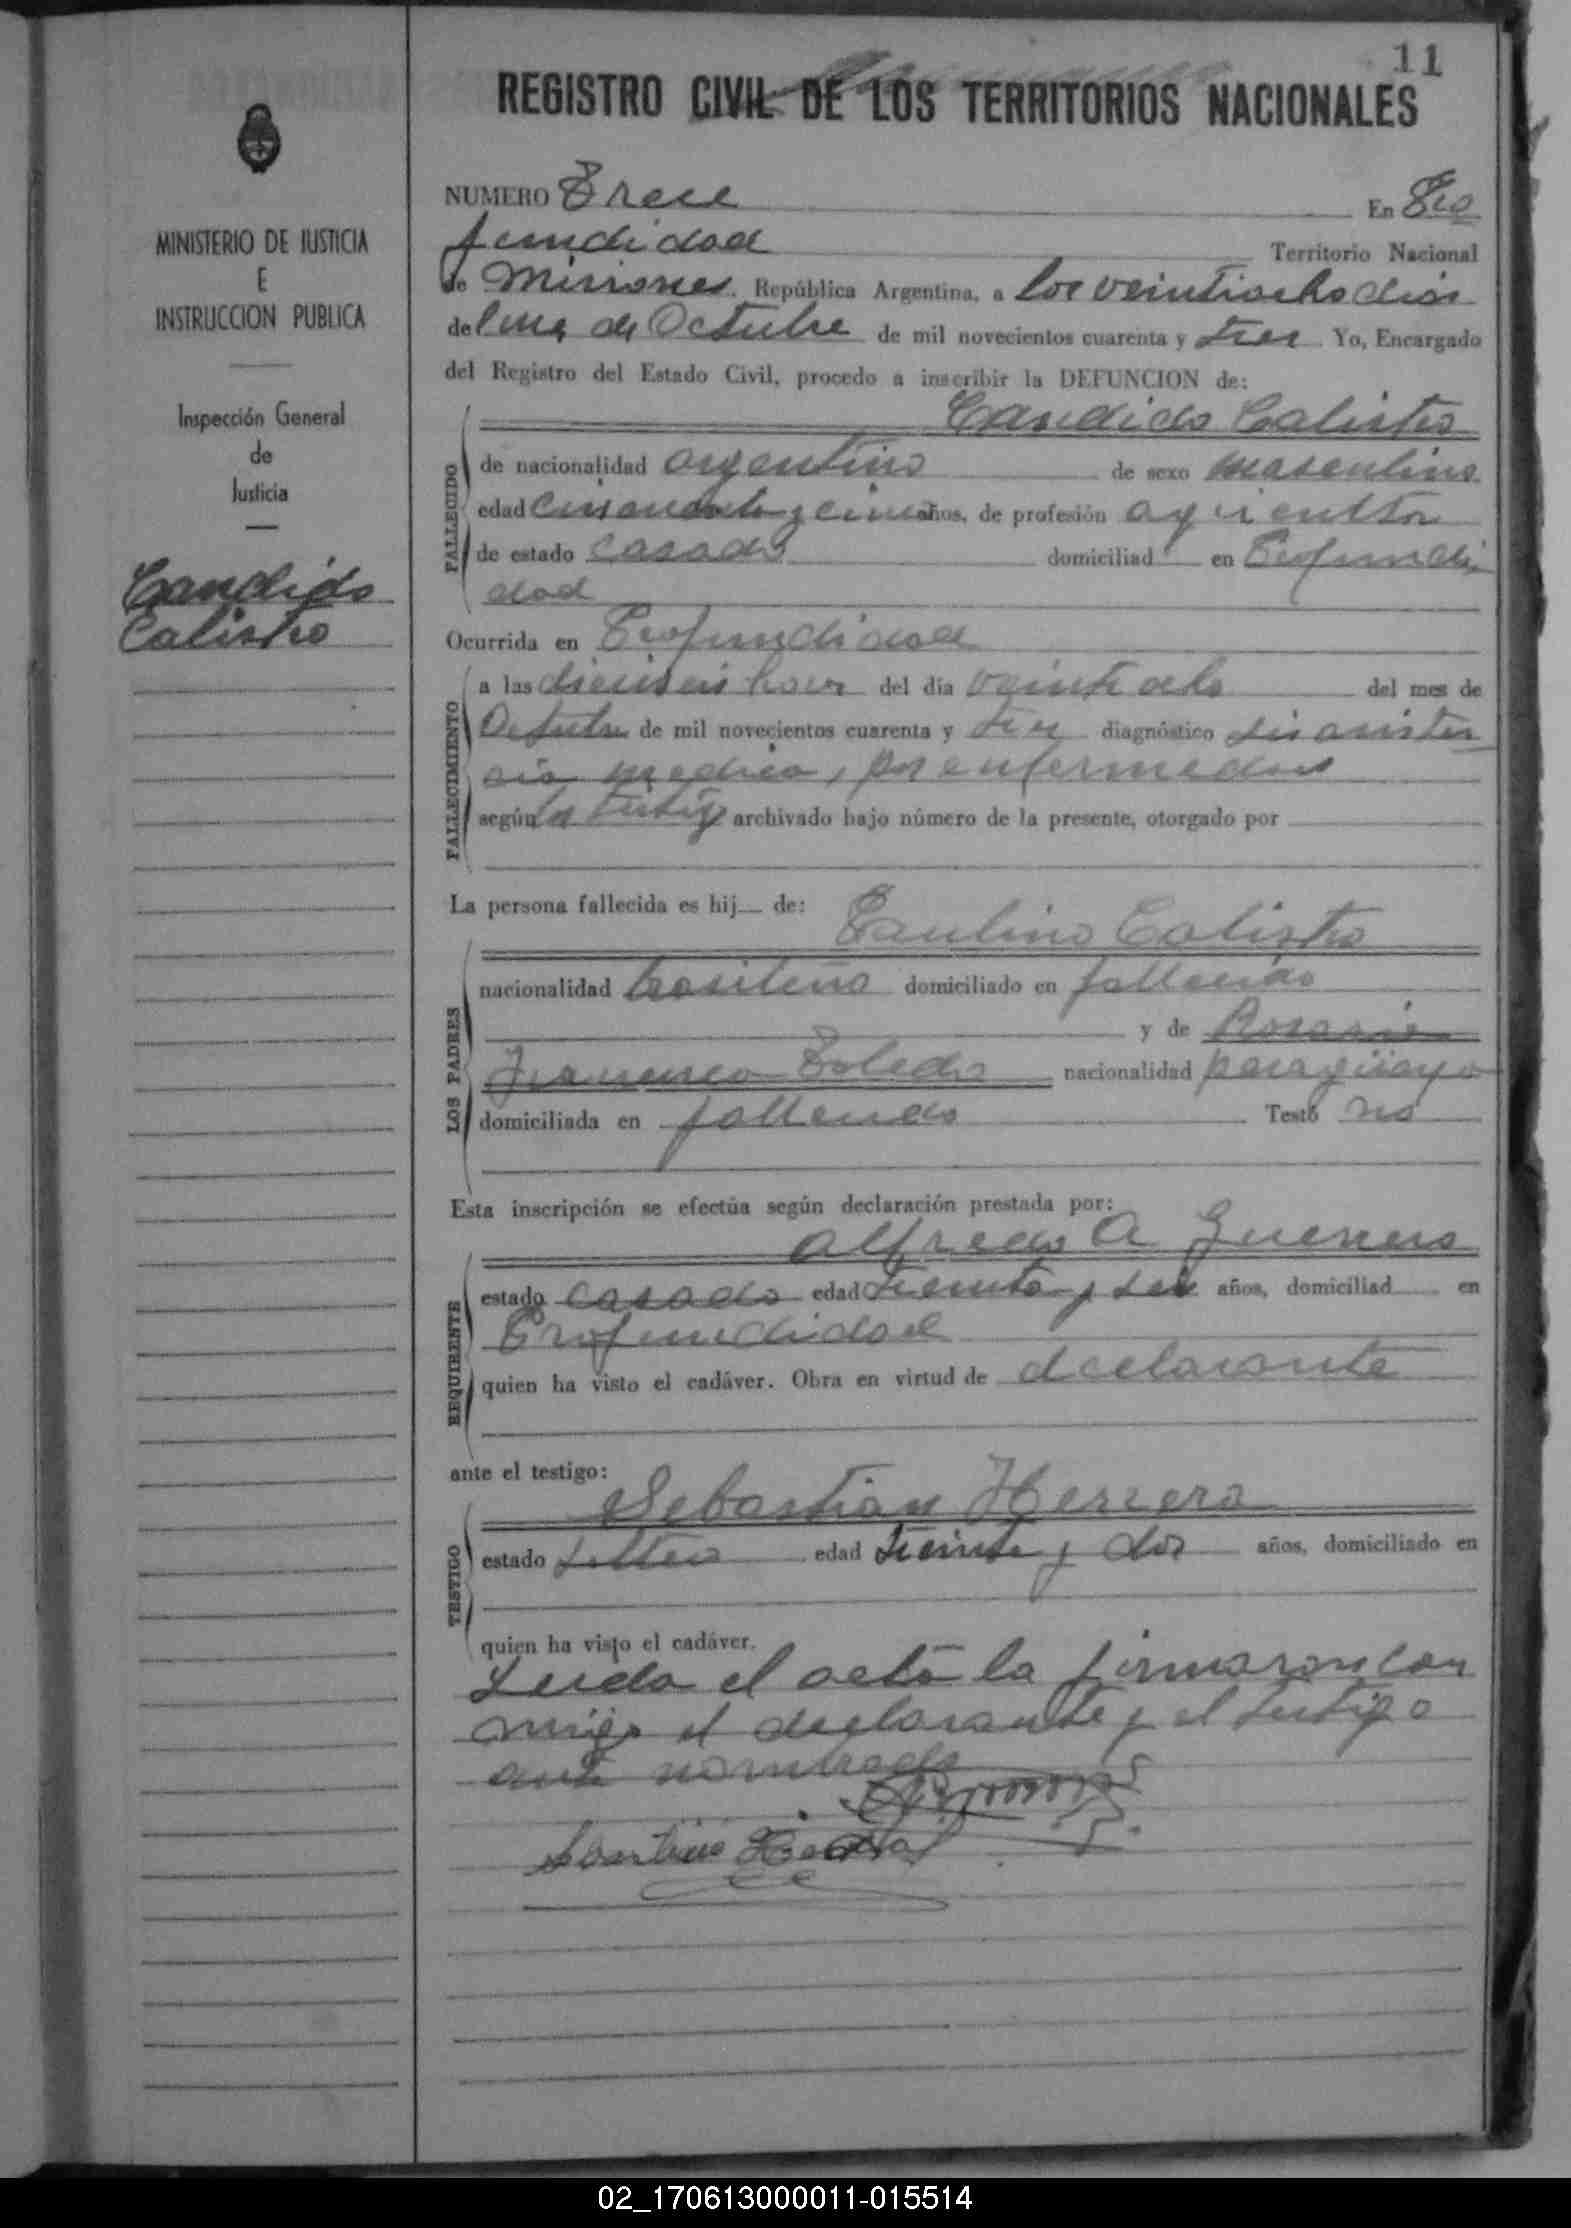 11
REGISTRO CIVIL DE LOS TERRITORIOS NACIONALES
MINISTERIO DE JUSTICIA
E
INSTRUCCION PUBLICA
Inspección General
de
Justicia
Candido
Calistro
NUMERO Trece En Pro
fundidad Territorio Nacional
de Misiones. República Argentina, a los veintiocho dias
del mes de Octubre de mil novecientos cuarenta y tres. Yo, Encargado
del Registro del Estado Civil, procedo a inscribir la DEFUNCION de:
Candido Calistro
FALLECIDO
de nacionalidad argentino de sexo masculino
edad años, de profesión agricultor
de estado casado domiciliad en Profundi
dad
Ocurrida en Profundidad
FALLECIMIENTO
a las dieciseis horas del día veintiocho del mes de
Octubre de mil novecientos cuarenta y tres diagnóstico sin asisten
cia medica, por enfermedad
según testigo archivado bajo número de la presente, otorgado por
La persona fallecida es hij de:
Paulino Calistro
LOS PADRES
nacionalidad brasileño domiciliado en fallecido
y de Rosario
Francisca Toledo nacionalidad paraguaya
domiciliada en fallecido Testó no
Esta inscripción se efectúa según declaración prestada por:
Alfredo A
REQUIRENTE
estado casado edad treinta y años, domiciliad en
Profundidad
quien ha visto el cadáver. Obra en virtud de declarante
ante el testigo:
Sebastian Herrera
TESTIGO
estado soltero edad treinta y dos años, domiciliado en
quien ha visto el cadáver.
Leida el acta la firmaron con
migo el declarante y el testigo
ante nombrado
02_170613000011-015514